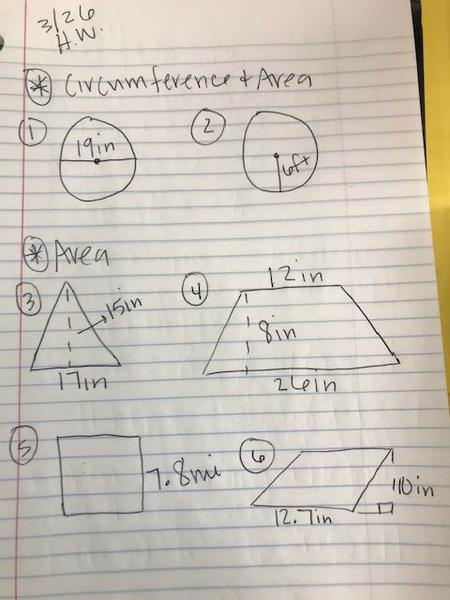 3/26
H.W.
* Circumference + Area
1 2
19in 6ft
* Area
3 4
12in
15in 8in
17in 26in
5 6
7.8mi 10in
12.7in